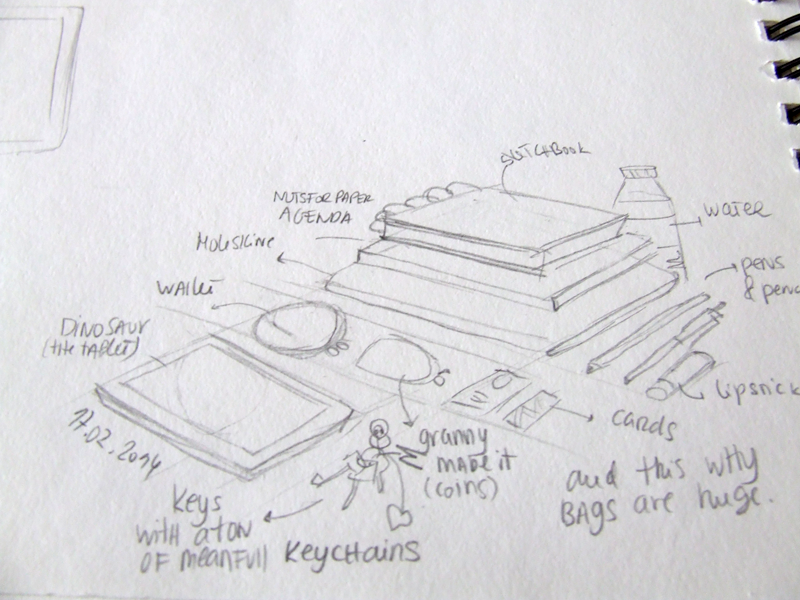 SKETCHBOOK
NUTSFORPAPER
AGENDA
MOLESKINE
WALLET
DINOSAUR
(THE TABLET)
17.02.2014
WATER
pens
& penc
Lipsnick
cards
granny
MADE it
(coins)
Keys
WITH A TON
OF MEANFULL KEYCHAINS
and this why
BAGS are huge.